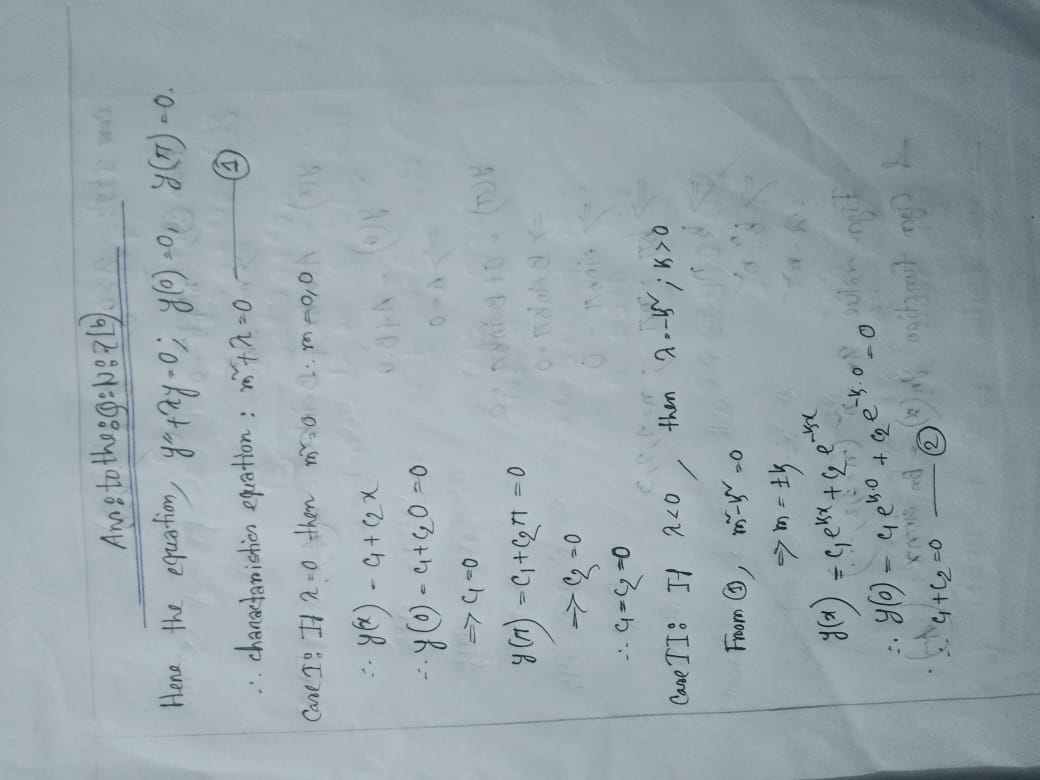 Ans: to the: Q: No: 7(b)
Here the equation, y'' + λy = 0; y(0) = 0, y(π) = 0.
∴ characteristics equation : m² + λ = 0 ——— ①
Case I: If λ = 0 then m² = 0 ∴ m = 0,0
∴ y(x) = c₁ + c₂x
∴ y(0) = c₁ + c₂0 = 0
⇒ c₁ = 0
y(π) = c₁ + c₂π = 0
⇒ c₂ = 0
∴ c₁ = c₂ = 0
Case II: If λ < 0, then λ = -k²; k > 0
From ①, m² - k² = 0
⇒ m = ±k
y(x) = c₁e^{kx} + c₂e^{-kx}
∴ y(0) = c₁e^{k.0} + c₂e^{-k.0} = 0
∴ c₁ + c₂ = 0 ——— ②